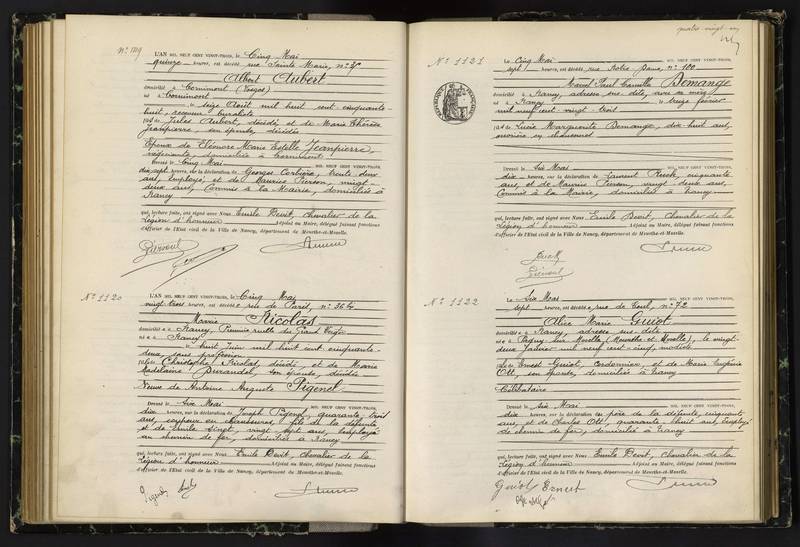 N° 1119
L'AN MIL NEUF CENT VINGT-TROIS, le Cinq Mai
quinze heures, est décédé, rue Sainte Marie, n°
Albert Aubert
domicilié à Cornimont (Vosges)
né à Cornimont
le seize Août mil huit cent cinquante-
huit, receveur buraliste
fils de Jules Aubert, décédé, et de Marie Thérèse
Jeanpierre, son épouse, décédée
Epoux de Eléonore Marie Estelle Jeanpierre,
négociante, domiciliée à Cornimont
Dressé le Cinq Mai MIL NEUF CENT VINGT-TROIS,
dix sept heures, sur la déclaration de Georges Corbière, trente deux
ans, Employé, et de Maurice Pierson, vingt-
deux ans, Commis à la Mairie, domiciliés à
Nancy
qui, lecture faite, ont signé avec Nous Emile Devit, Chevalier de la
Légion d'honneur Adjoint au Maire, délégué faisant fonctions
d'officier de l'Etat civil de la Ville de Nancy, département de Meurthe-et-Moselle.
N° 1120
L'AN MIL NEUF CENT VINGT-TROIS, le Cinq Mai
vingt trois heures, est décédée rue de Paris, n° 36
Marie Nicolas
domiciliée à Nancy, Première ruelle du Grand Verger
née à Nancy
le huit Juin mil huit cent cinquante-
deux, sans profession
fille de Christophe Nicolas, décédé, et de Marie
Madelaine Durandel, son épouse, décédée
Veuve de Antoine Auguste Pigenel
Dressé le six Mai MIL NEUF CENT VINGT-TROIS,
dix heures, sur la déclaration de Joseph Pigenel, quarante trois
ans, coupeur en chaussures, fils de la défunte
et de Emile vingt sept ans, Employé
au chemin de fer, domiciliés à Nancy
qui, lecture faite, ont signé avec Nous Emile Devit, Chevalier de la
Légion d'honneur Adjoint au Maire, délégué faisant fonctions
d'officier de l'Etat civil de la Ville de Nancy, département de Meurthe-et-Moselle.
Pigenel
quatre vingt un
N° 1121
Le Cinq Mai MIL NEUF CENT VINGT-TROIS,
sept heures, est décédé, rue Notre Dame, n° 100
Marcel Paul Camille Demange
domicilié à Nancy, adresse sus dite, avec sa mère
né à Nancy le treize février
mil neuf cent vingt trois
fils de Lucie Marguerite Demange, dix huit ans,
ouvrière en chaussures
Dressé le six Mai MIL NEUF CENT VINGT-TROIS,
dix heures, sur la déclaration de Laurent Ruck, cinquante
ans, et de Maurice Pierson, vingt deux ans,
Commis à la Mairie, domiciliés à Nancy
qui, lecture faite, ont signé avec Nous Emile Devit, Chevalier de la
Légion d'honneur Adjoint au Maire, délégué faisant fonctions
d'officier de l'Etat civil de la Ville de Nancy, département de Meurthe-et-Moselle.
Ruck
N° 1122
Le six Mai MIL NEUF CENT VINGT-TROIS,
sept heures, est décédée, rue de Toul, n° 72
Alice Marie Guiot
domiciliée à Nancy, adresse sus dite
née à Pagny sur Moselle (Meurthe et Moselle), le vingt-
deux Janvier mil neuf cent cinq, modiste
fille de Ernest Guiot, Cordonnier, et de Marie Eugénie
Ott, son épouse, domiciliés à Nancy
Célibataire
Dressé le six Mai MIL NEUF CENT VINGT-TROIS,
dix heures, sur la déclaration du père de la défunte, cinquante
ans, et de Charles Ott, quarante huit ans, Employé
de chemin de fer, domiciliés à Nancy
qui, lecture faite, ont signé avec Nous Emile Devit, Chevalier de la
Légion d'honneur Adjoint au Maire, délégué faisant fonctions
d'officier de l'Etat civil de la Ville de Nancy, département de Meurthe-et-Moselle.
Guiot Ernest